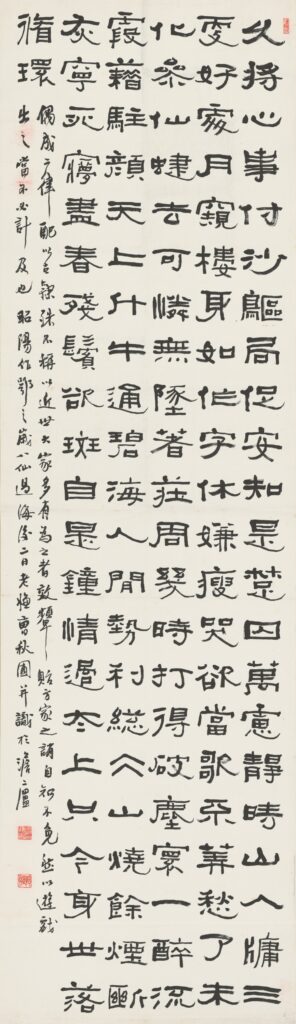 久將心事付沙鷗局促安知是楚囚萬慮靜時山入牖三
更好處月窺樓身如作字休嫌瘦哭欲當歌不算愁了未
化參仙蜨去可憐無墜著莊周幾時打得破塵寰一醉流
霞藉駐顏天上斗牛通碧海人間勢利總仌山燒餘煙斷
灰寧死㝱盡春殘鬢欲斑自是鐘情遜太上只今身世落
循環
偶成二律配以古隸殊不稱以近世大家多有為之者效顰貽方家之誚自知不免然以遊戲
出之當不必計及也 昭陽作鄂之歲八仙過海後二日老嫌曹秋圃并識於澹廬